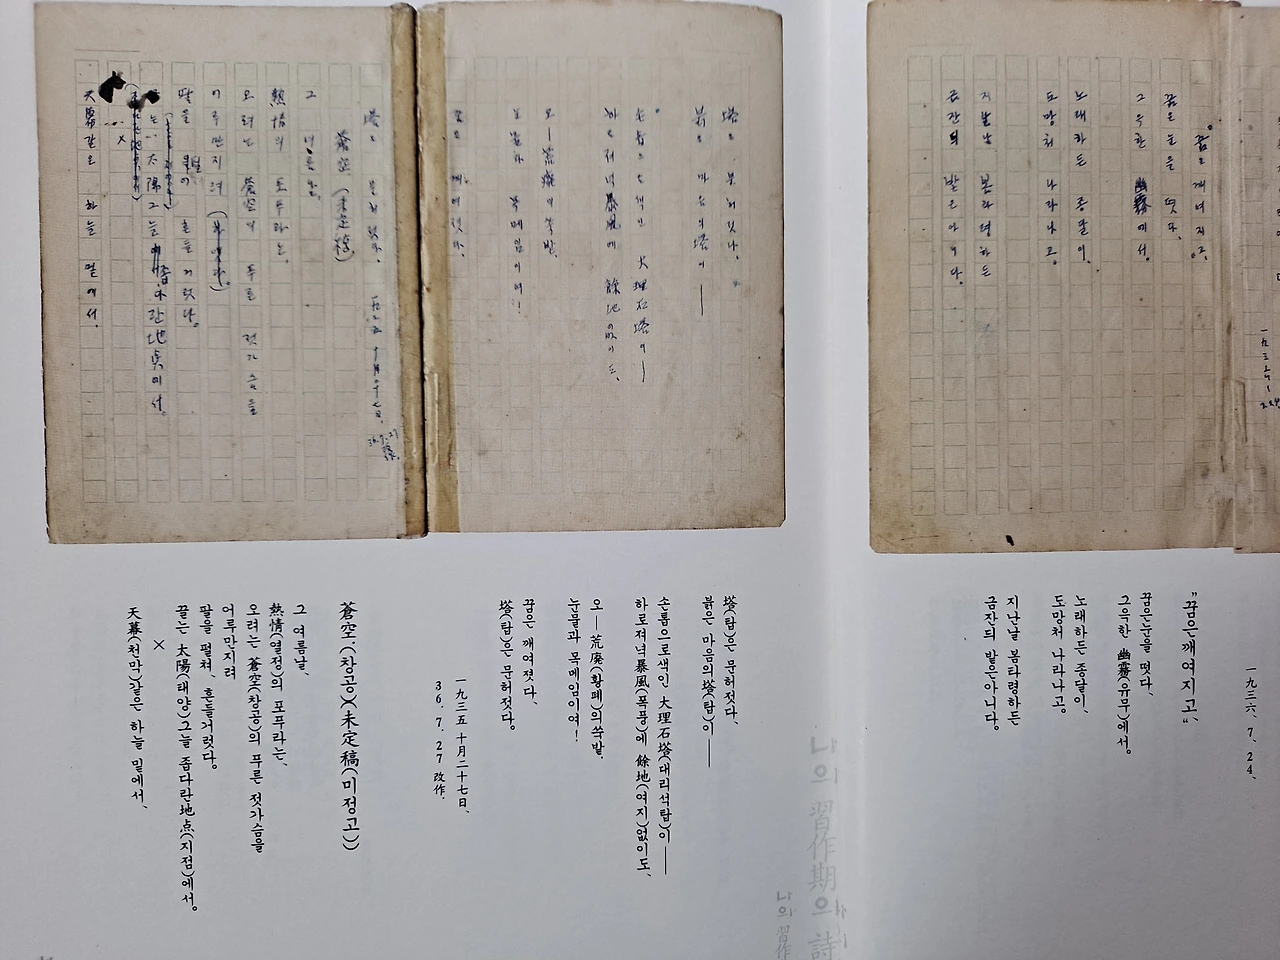 一九三六. 7. 24.
"꿈은 깨여지고"
꿈은 눈을 떳다,
그윽한 幽霧(유무)에서.
노래하든 종달이,
도망처 나라나고,
지난날 봄타령하든
금잔듸 밭은아니다.
塔(탑)은 문허젓다,
붉은 마음의塔(탑)이 ──
손톱으로색인 大理石塔(대리석탑)이 ──
하로저녁暴風(폭풍)에 餘地(여지)없이도,
오─ 荒廢(황폐)의쑥밭,
눈물과 목메임이여!
꿈은 깨여젓다,
塔(탑)은 문허젓다.
一九三五 十月二十七日、
36. 7. 27 改作.
蒼空(창공)(未定稿(미정고))
그 여름날,
熱情(열정)의 포푸라는,
오려는 蒼空(창공)의 푸른 젓가슴을
어루만지려
팔을 펼쳐, 흔들거럿다.
끌는 太陽(태양)그늘 좁다란地点(지점)에서.
×
天幕(천막)같은 하늘 밑에서,
나의 習作期의 詩
나의 習作
塔은 문허젓다.
붉은 마음의塔이 ──
손톱으로색인 大理石塔이 ──
하로저녁暴風에 餘地없이도,
오─荒廢의쑥밭,
눈물과 목메임이여!
꿈은 깨여젓다.
塔은 문허젓다.
一九三五 十月二十七日、
36. 7. 27 改作.
蒼空(未定稿)
그 여름날,
熱情의 포푸라는,
오려는 蒼空의 푸른 젓가슴을
어루만지려
팔을 펼쳐 흔들거럿다.
끌는 太陽그늘 좁다란地点에서.
×
天幕같은 하늘 밑에서,
꿈은 깨여지고
꿈은 눈을 떳다,
그윽한 幽霧에서.
노래하든 종달이,
도망처 나라나고,
지난날 봄타령하든
금잔듸 밭은아니다.